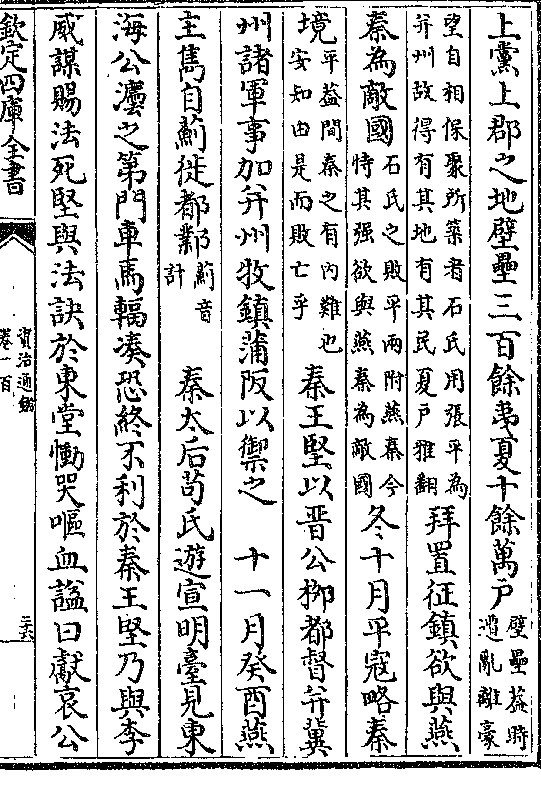 上黨上郡之地壁壘三百餘夷夏十餘萬戶壁壘葢時
遭亂離豪
望自相保聚所築者石氏用張平為
并州故得有其地有其民夏戶雅翻拜置征鎮欲與燕
秦為敵國石氏之敗平兩附燕秦今
恃其强欲與燕秦為敵國冬十月平寇略秦
境平葢間秦之有內難也
安知由是而敗亡乎秦王堅以晋公柳都督并冀
州諸軍事加并州牧鎮蒲阪以禦之　十一月癸酉燕
主雋自薊徙都鄴薊音
計　秦太后苟氏遊宣明臺見東
海公灋之第門車馬輻凑恐終不利於秦王堅乃與李
威謀賜法死堅與法訣於東堂慟哭嘔血諡曰獻哀公
欽定四庫全書
資治通鑑
卷一百
三六